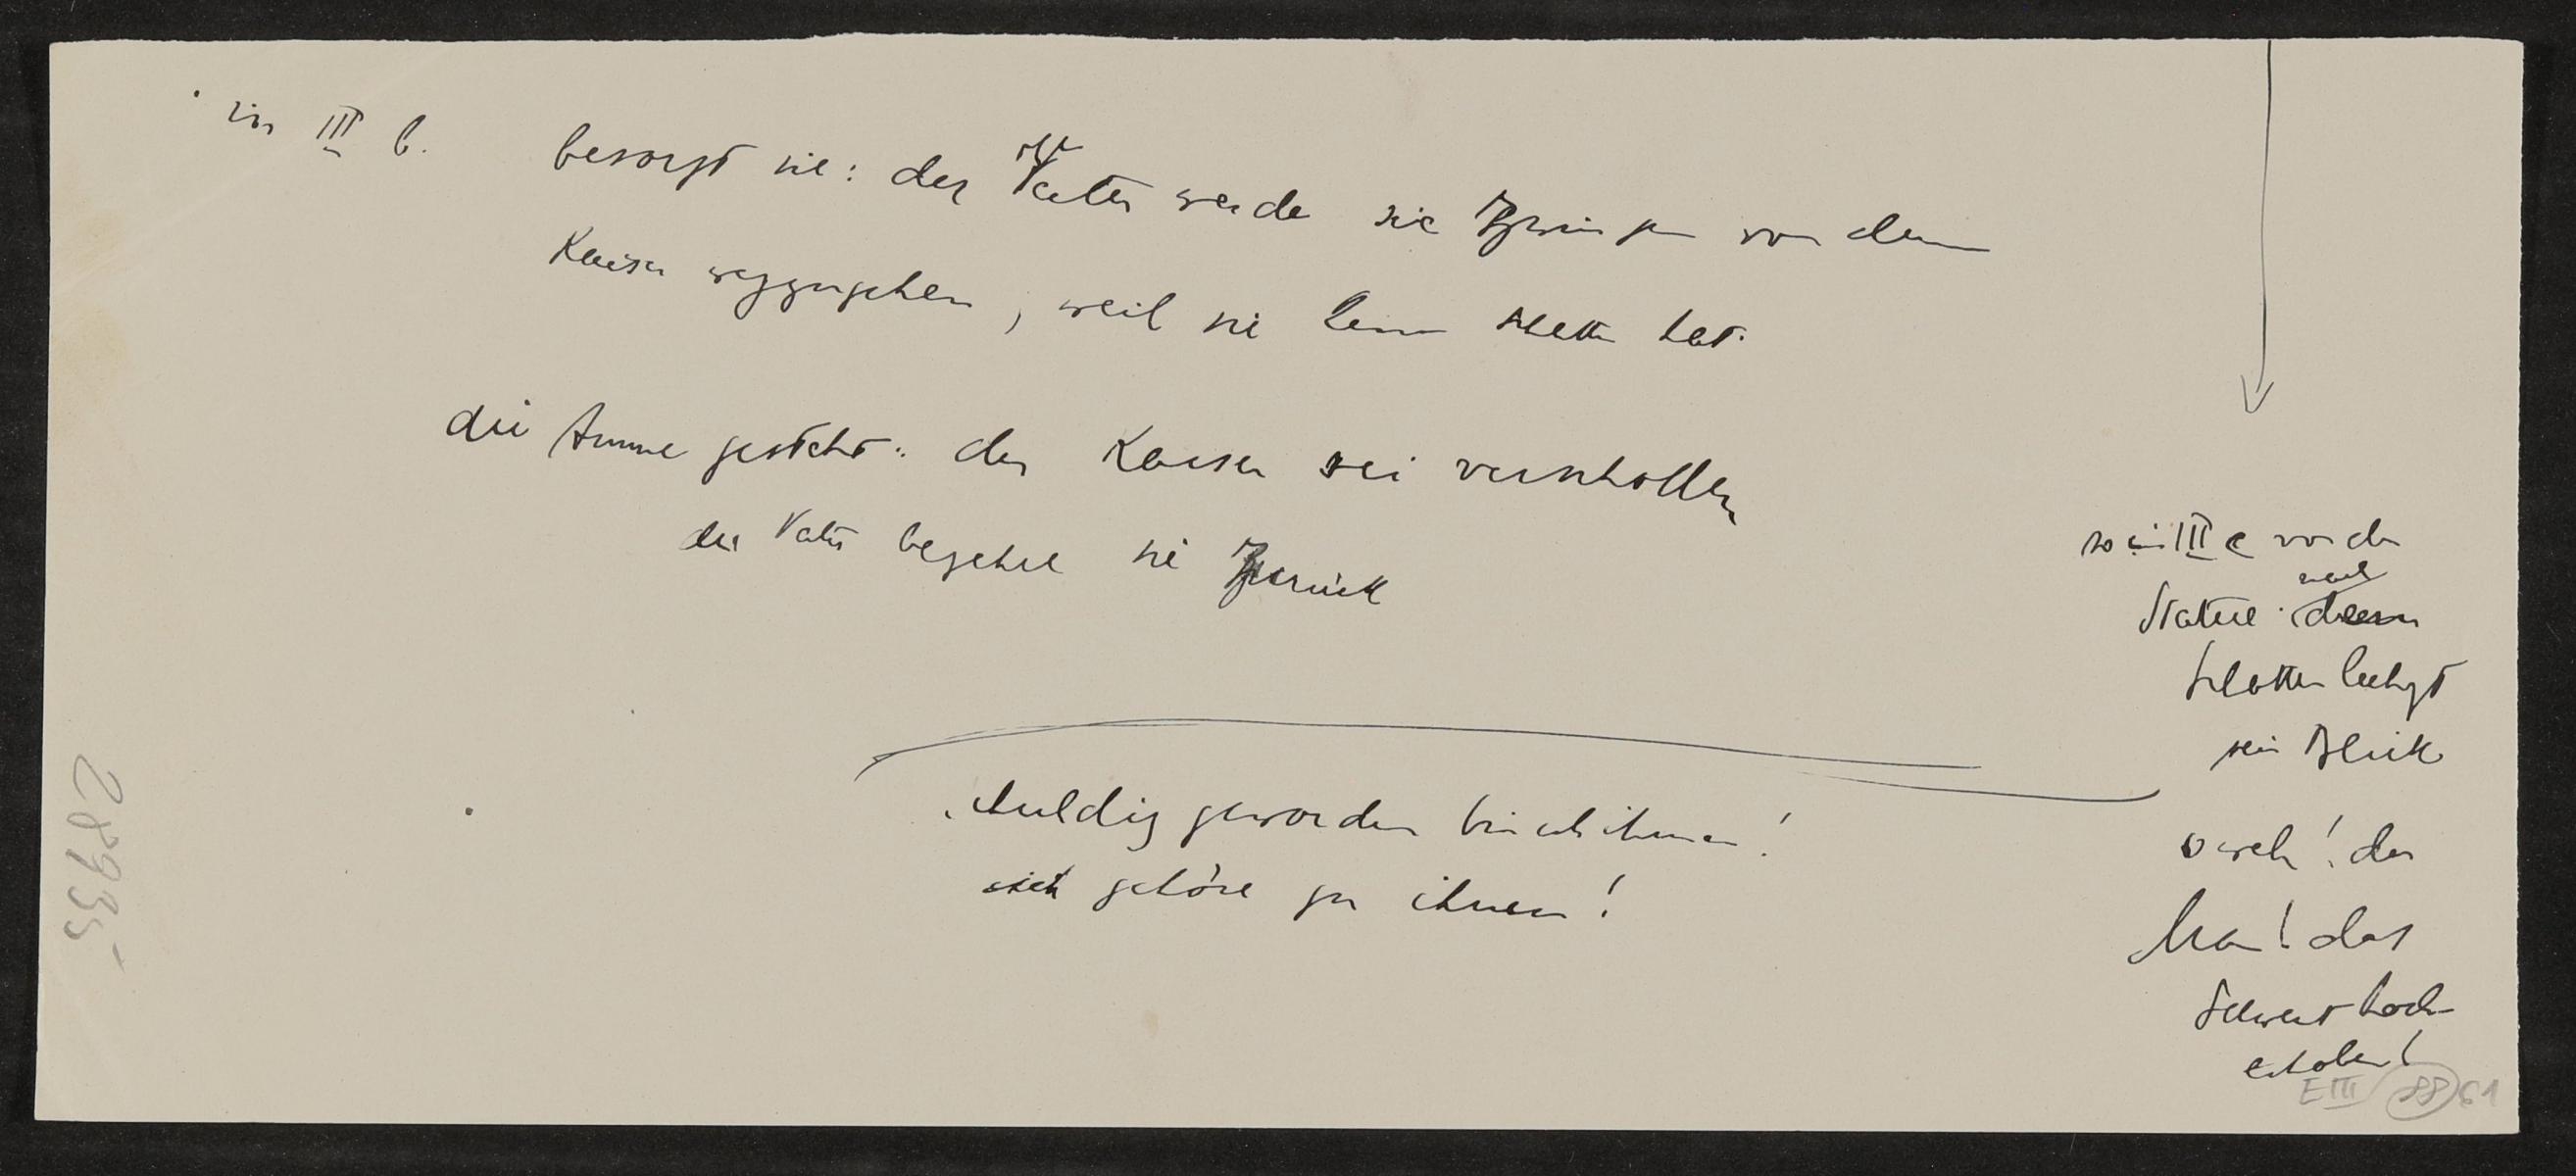 in III b. besorgt sie: der Vater werde sie zwingen von dem
Kaiser wegzugehen, weil sie keinen Schatten hat.
die Amme gesteht: der Kaiser sei verschollen
der Vater begehre sie zurück
schuldig geworden bin ich ihnen!
ich gehöre zu ihnen!
so in III c vor der
nach
Statue: dem
Schatten lechzt
sein Blick
o weh! der
Mann! das
Schwert hoch
erhoben!
E III 88 61
28935